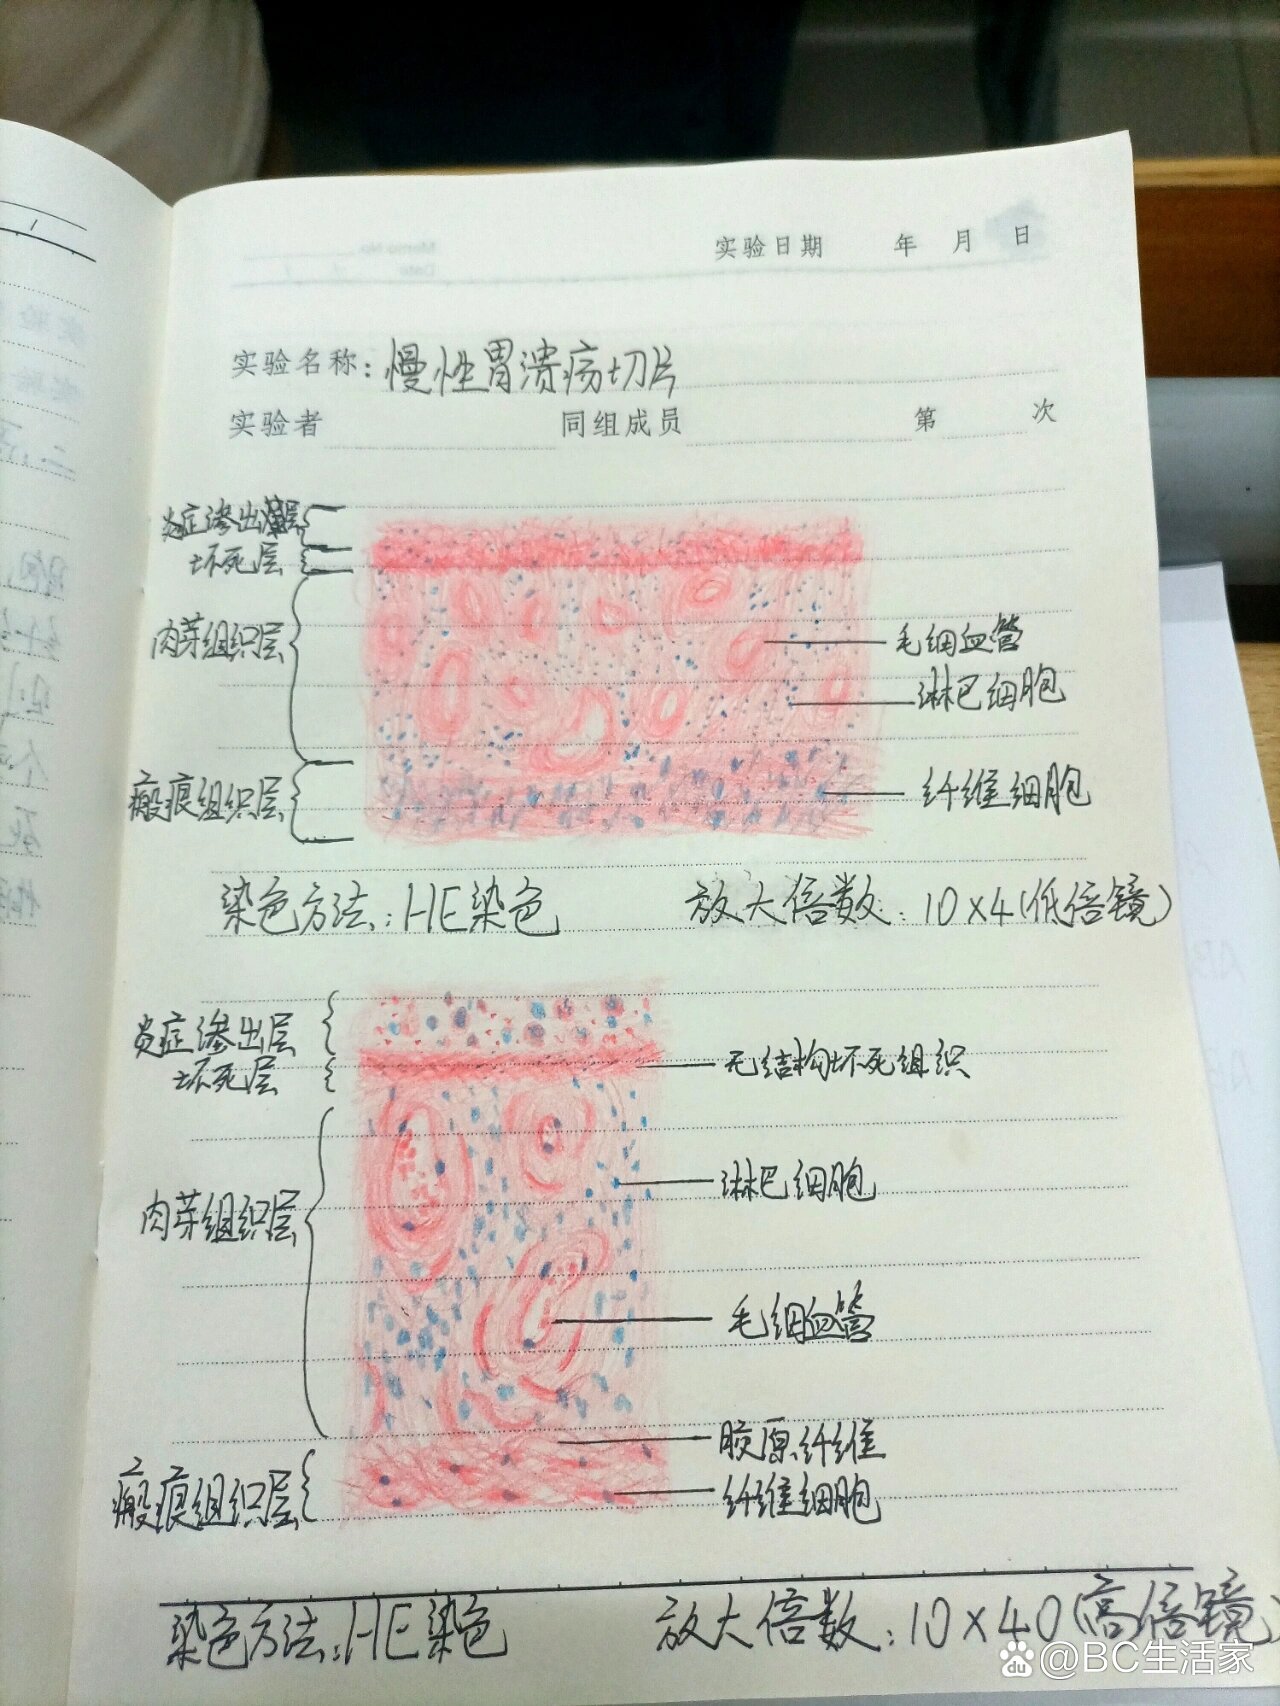 实验日期 年 月 日
实验名称：慢性胃溃疡切片
实验者 同组成员 第 次
炎症渗出层
坏死层
肉芽组织层
毛细血管
淋巴细胞
瘢痕组织层
纤维细胞
染色方法：HE染色 放大倍数：10×4(低倍镜)
炎症渗出层
坏死层
无结构坏死组织
淋巴细胞
肉芽组织层
毛细血管
胶原纤维
瘢痕组织层
纤维细胞
染色方法：HE染色 放大倍数：10×40(高倍镜)
Bai du @BC生活家